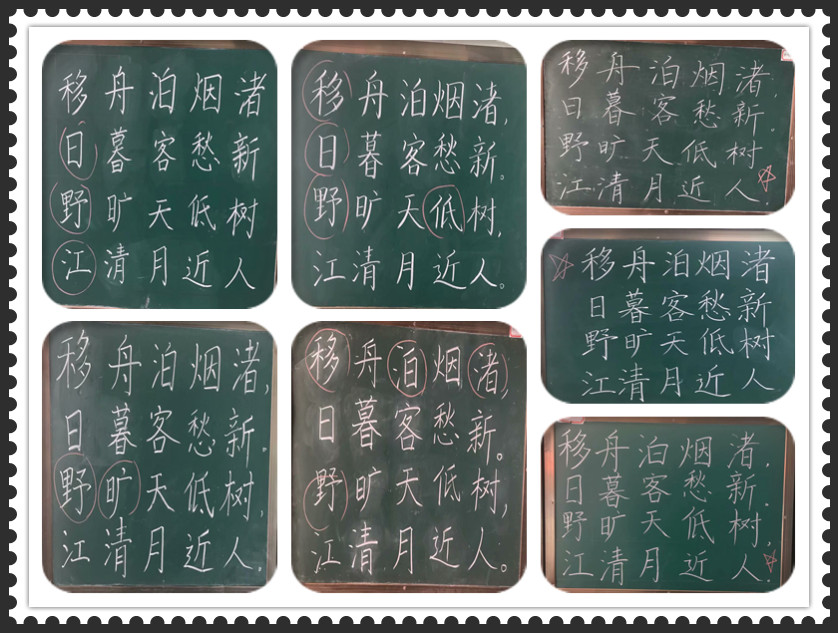 移舟泊烟渚
日暮客愁新
野旷天低树
江清月近人
移舟泊烟渚，
日暮客愁新。
野旷天低树，
江清月近人。
移舟泊烟渚，
日暮客愁新。
野旷天低树，
江清月近人。
移舟泊烟渚
日暮客愁新
野旷天低树
江清月近人
移舟泊烟渚，
日暮客愁新。
野旷天低树，
江清月近人。
移舟泊烟渚，
日暮客愁新。
野旷天低树，
江清月近人。
移舟泊烟渚，
日暮客愁新。
野旷天低树，
江清月近人。